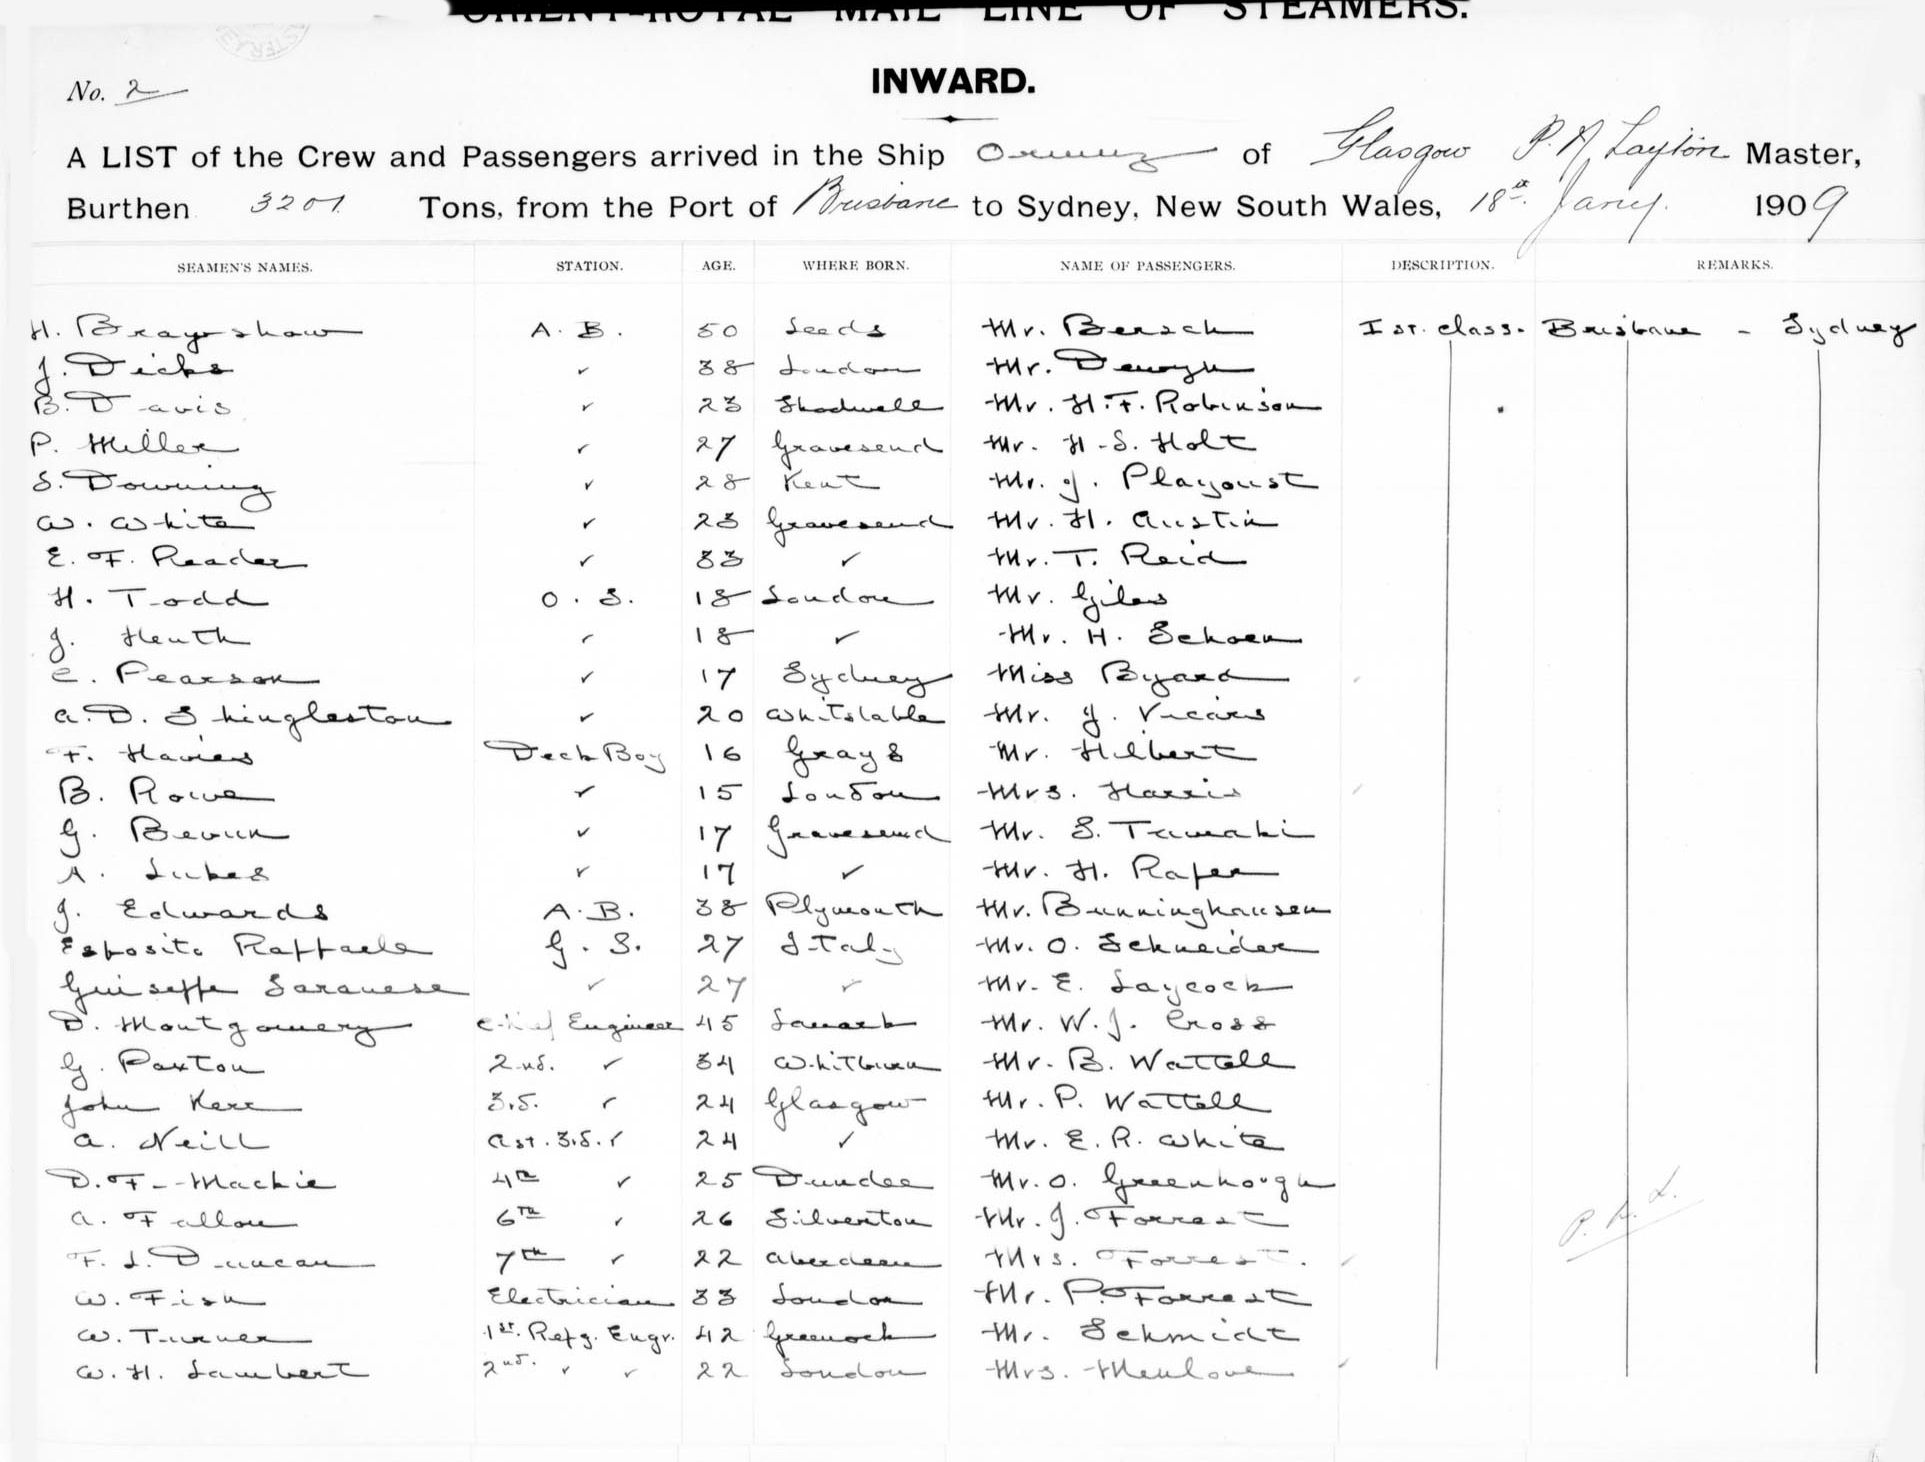 ORIENT-ROYAL MAIL LINE OF STEAMERS.
No. 2
INWARD.
A LIST of the Crew and Passengers arrived in the Ship Ormuz of Glasgow P. A. Layton Master,
Burthen 3201 Tons, from the Port of Brisbane to Sydney, New South Wales, 18th Jany. 1909
SEAMEN'S NAMES. STATION. AGE. WHERE BORN. NAME OF PASSENGERS. DESCRIPTION. REMARKS.
H. Brayshaw A. B. 50 Leeds Mr. Bersch 1st. class. Brisbane - Sydney
J. Dicks ✓ 38 London Mr.
B. Davis ✓ 23 Shadwell Mr. H. F. Robinson
P. Miller ✓ 27 Gravesend Mr. H. S. Holt
S. Downing ✓ 28 Kent Mr. J. Playoust
W. White ✓ 23 Gravesend Mr. H. Austin
E. F. Reader ✓ 33 ✓ Mr. T. Reid
H. Todd O. S. 18 London Mr. Giles
J. Heuth ✓ 18 ✓ Mr. H. Schoen
C. Pearson ✓ 17 Sydney Miss Byard
A. D. Shingleston ✓ 20 Whitstable Mr. J. Vicars
F. Deck Boy 16 Grays Mr. Hilbert
B. Rowe ✓ 15 London Mrs. Harris
G. Bevun ✓ 17 Gravesend Mr. S. Tamaki
A. Lukes ✓ 17 ✓ Mr. H. Rafer
J. Edwards A. B. 38 Plymouth Mr. Bunninghausen
Esposito Raffaele G. S. 27 Italy Mr. O. Schneider
Guiseppe Saranese ✓ 27 ✓ Mr. E. Laycock
D. Montgomery Chief Engineer 45 Lanark Mr. W. J. Cross
G. Paxton 2nd. ✓ 34 Whitburn Mr. B. Wattell
John Kerr 3rd. ✓ 24 Glasgow Mr. P. Wattell
A. Neill Ast. 3rd. ✓ 24 ✓ Mr. E. R. White
D. F. Mackie 4th ✓ 25 Dundee Mr. O. Greenhough
A. Fallon 6th ✓ 26 Silverton Mr. J. Forrest
F. L. Duncan 7th ✓ 22 Aberdeen Mrs. Forrest.
W. Fish Electrician 33 London Mr. P. Forrest
W. Turner 1st. Refg. Engr. 42 Greenock Mr. Schmidt
W. H. Lambert 2nd. ✓ ✓ 22 London Mrs. Menlove